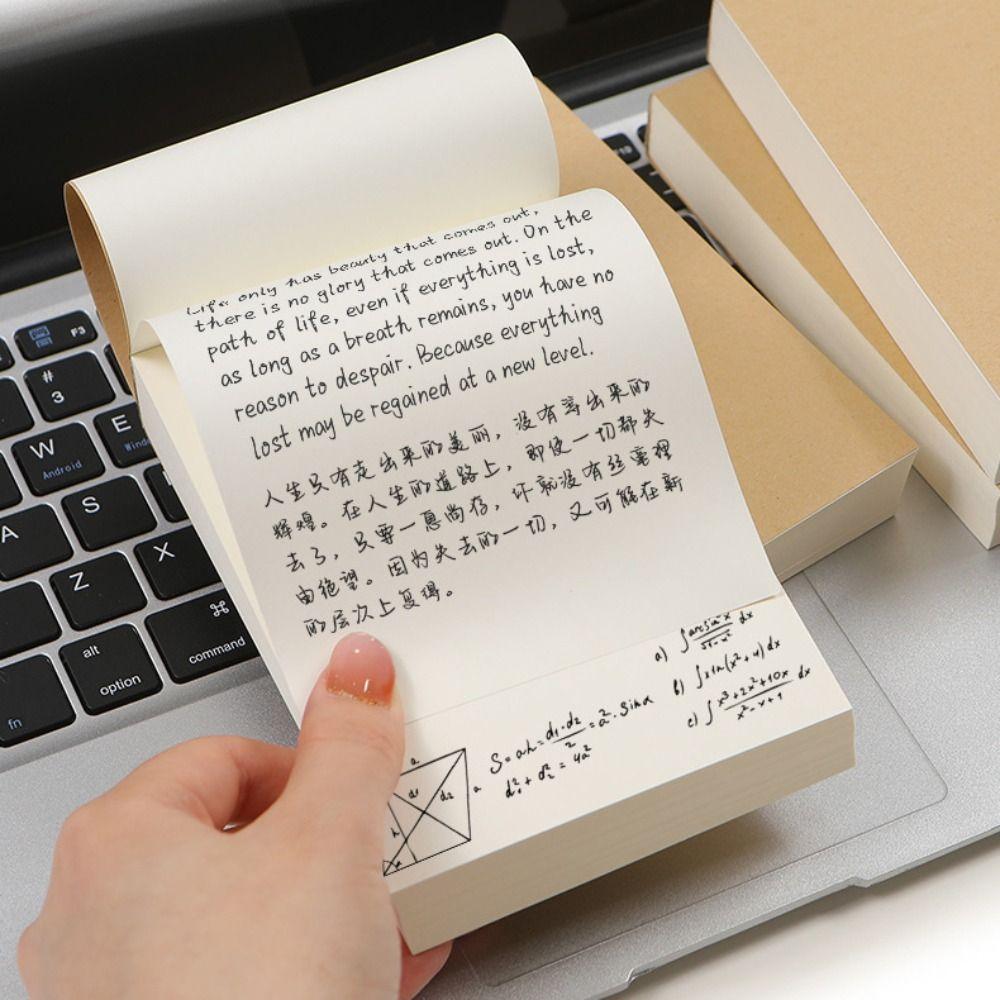 Life only has beauty that comes out,
there is no glory that comes out. On the
path of life, even if everything is lost,
as long as a breath remains, you have no
reason to despair. Because everything
lost may be regained at a new level.
人生只有走出来的美丽，没有等出来的
辉煌。在人生的道路上，即使一切都失
去了，只要一息尚存，你就没有丝毫理
由绝望。因为失去的一切，又可能在新
的层次上复得。
a) ∫ arcsin x / √1-x² dx
b) ∫ x ln(x²+4) dx
c) ∫ x³+2x²+10x / x²-x+1 dx
S = ah = d₁·d₂ / 2 = a²·sin α
d₁² + d₂² = 4a²
a
d₁
d₂
a
h
F3
#
3
W
Android
E
A
S
Z
X
⌘
command
alt
option
fn
F10